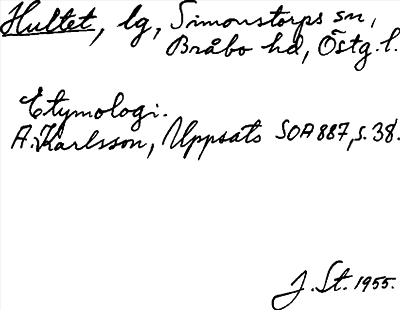 Hultet, lg, Simonstorps sn,
Bråbo hd, Östg. l.
Etymologi.
A. Karlsson, Uppsats SOA 887, s. 38.
J. St. 1955.